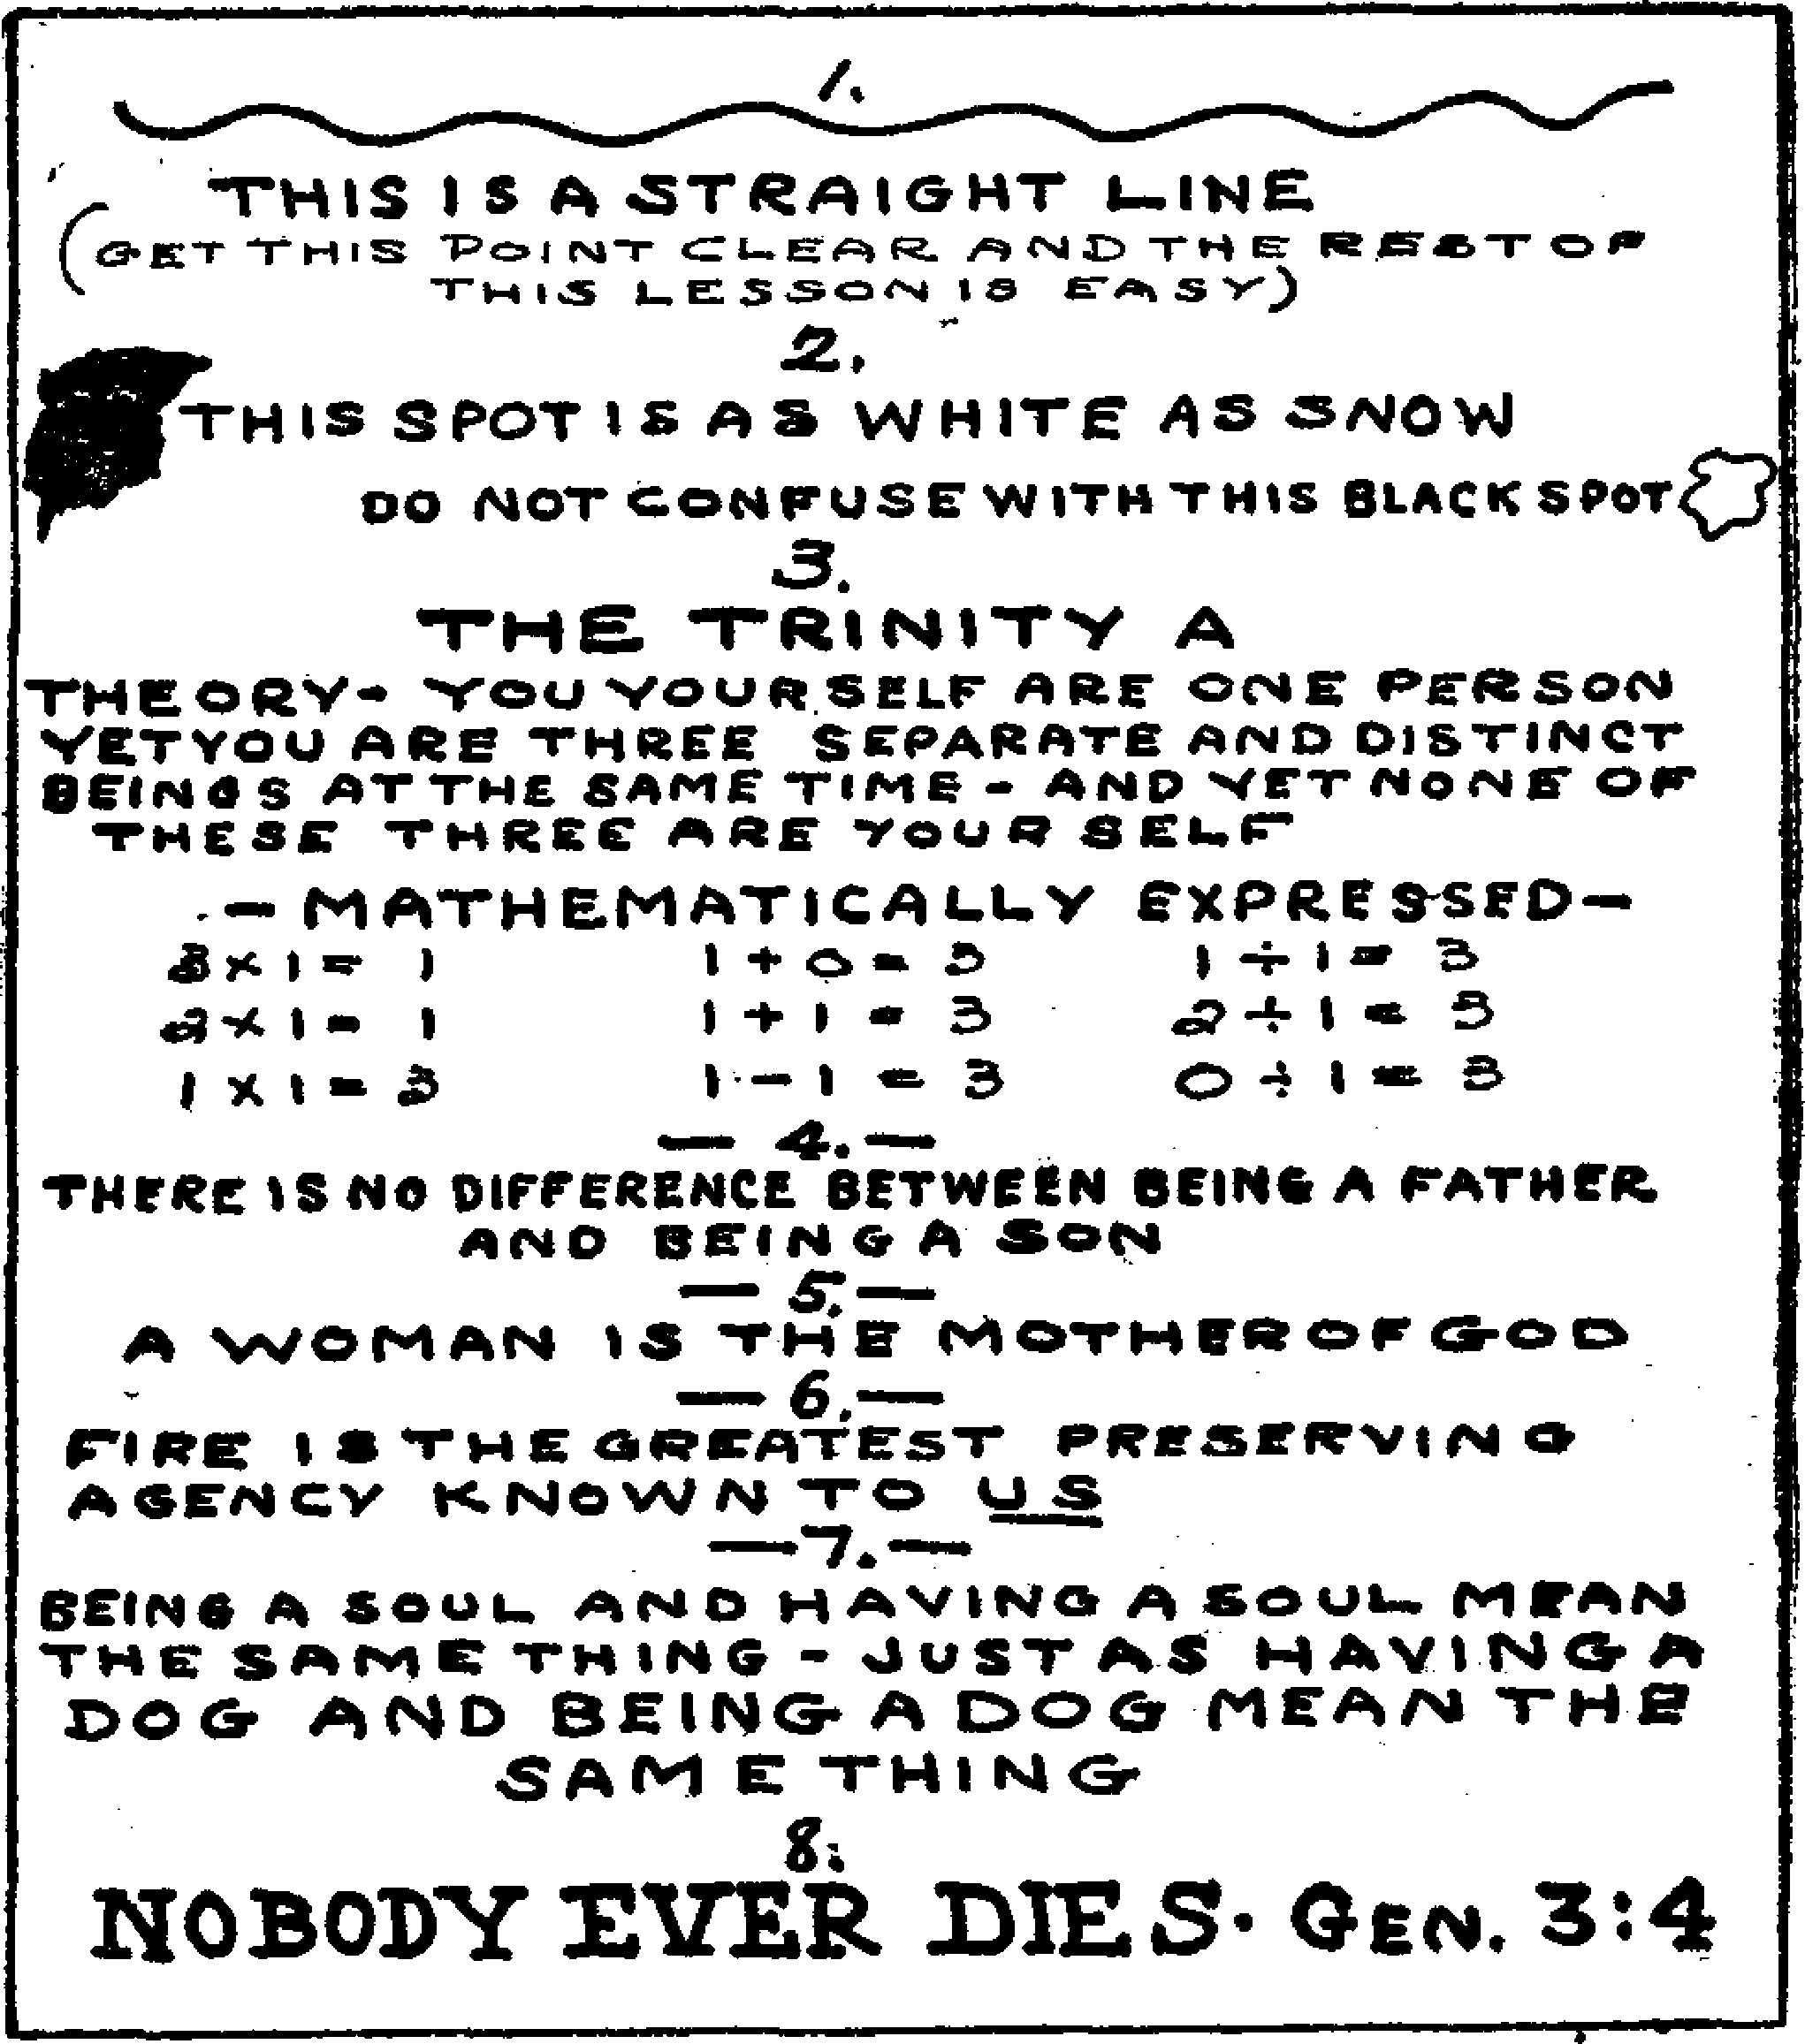 1.
THIS IS A STRAIGHT LINE
(GET THIS POINT CLEAR AND THE REST OF
THIS LESSON IS EASY)
2.
THIS SPOT IS AS WHITE AS SNOW
DO NOT CONFUSE WITH THIS BLACK SPOT
3.
THE TRINITY A
THEORY- YOU YOURSELF ARE ONE PERSON
YET YOU ARE THREE SEPARATE AND DISTINCT
BEINGS AT THE SAME TIME - AND YET NONE OF
THESE THREE ARE YOUR SELF
- MATHEMATICALLY EXPRESSED -
3 × 1 = 1 1 + 0 = 3 1 ÷ 1 = 3
2 × 1 = 1 1 + 1 = 3 2 ÷ 1 = 3
1 × 1 = 3 1 - 1 = 3 0 ÷ 1 = 3
— 4. —
THERE IS NO DIFFERENCE BETWEEN BEING A FATHER
AND BEING A SON
— 5. —
A WOMAN IS THE MOTHER OF GOD
— 6. —
FIRE IS THE GREATEST PRESERVING
AGENCY KNOWN TO US
— 7. —
BEING A SOUL AND HAVING A SOUL MEAN
THE SAME THING - JUST AS HAVING A
DOG AND BEING A DOG MEAN THE
SAME THING
8.
NOBODY EVER DIES. GEN. 3:4